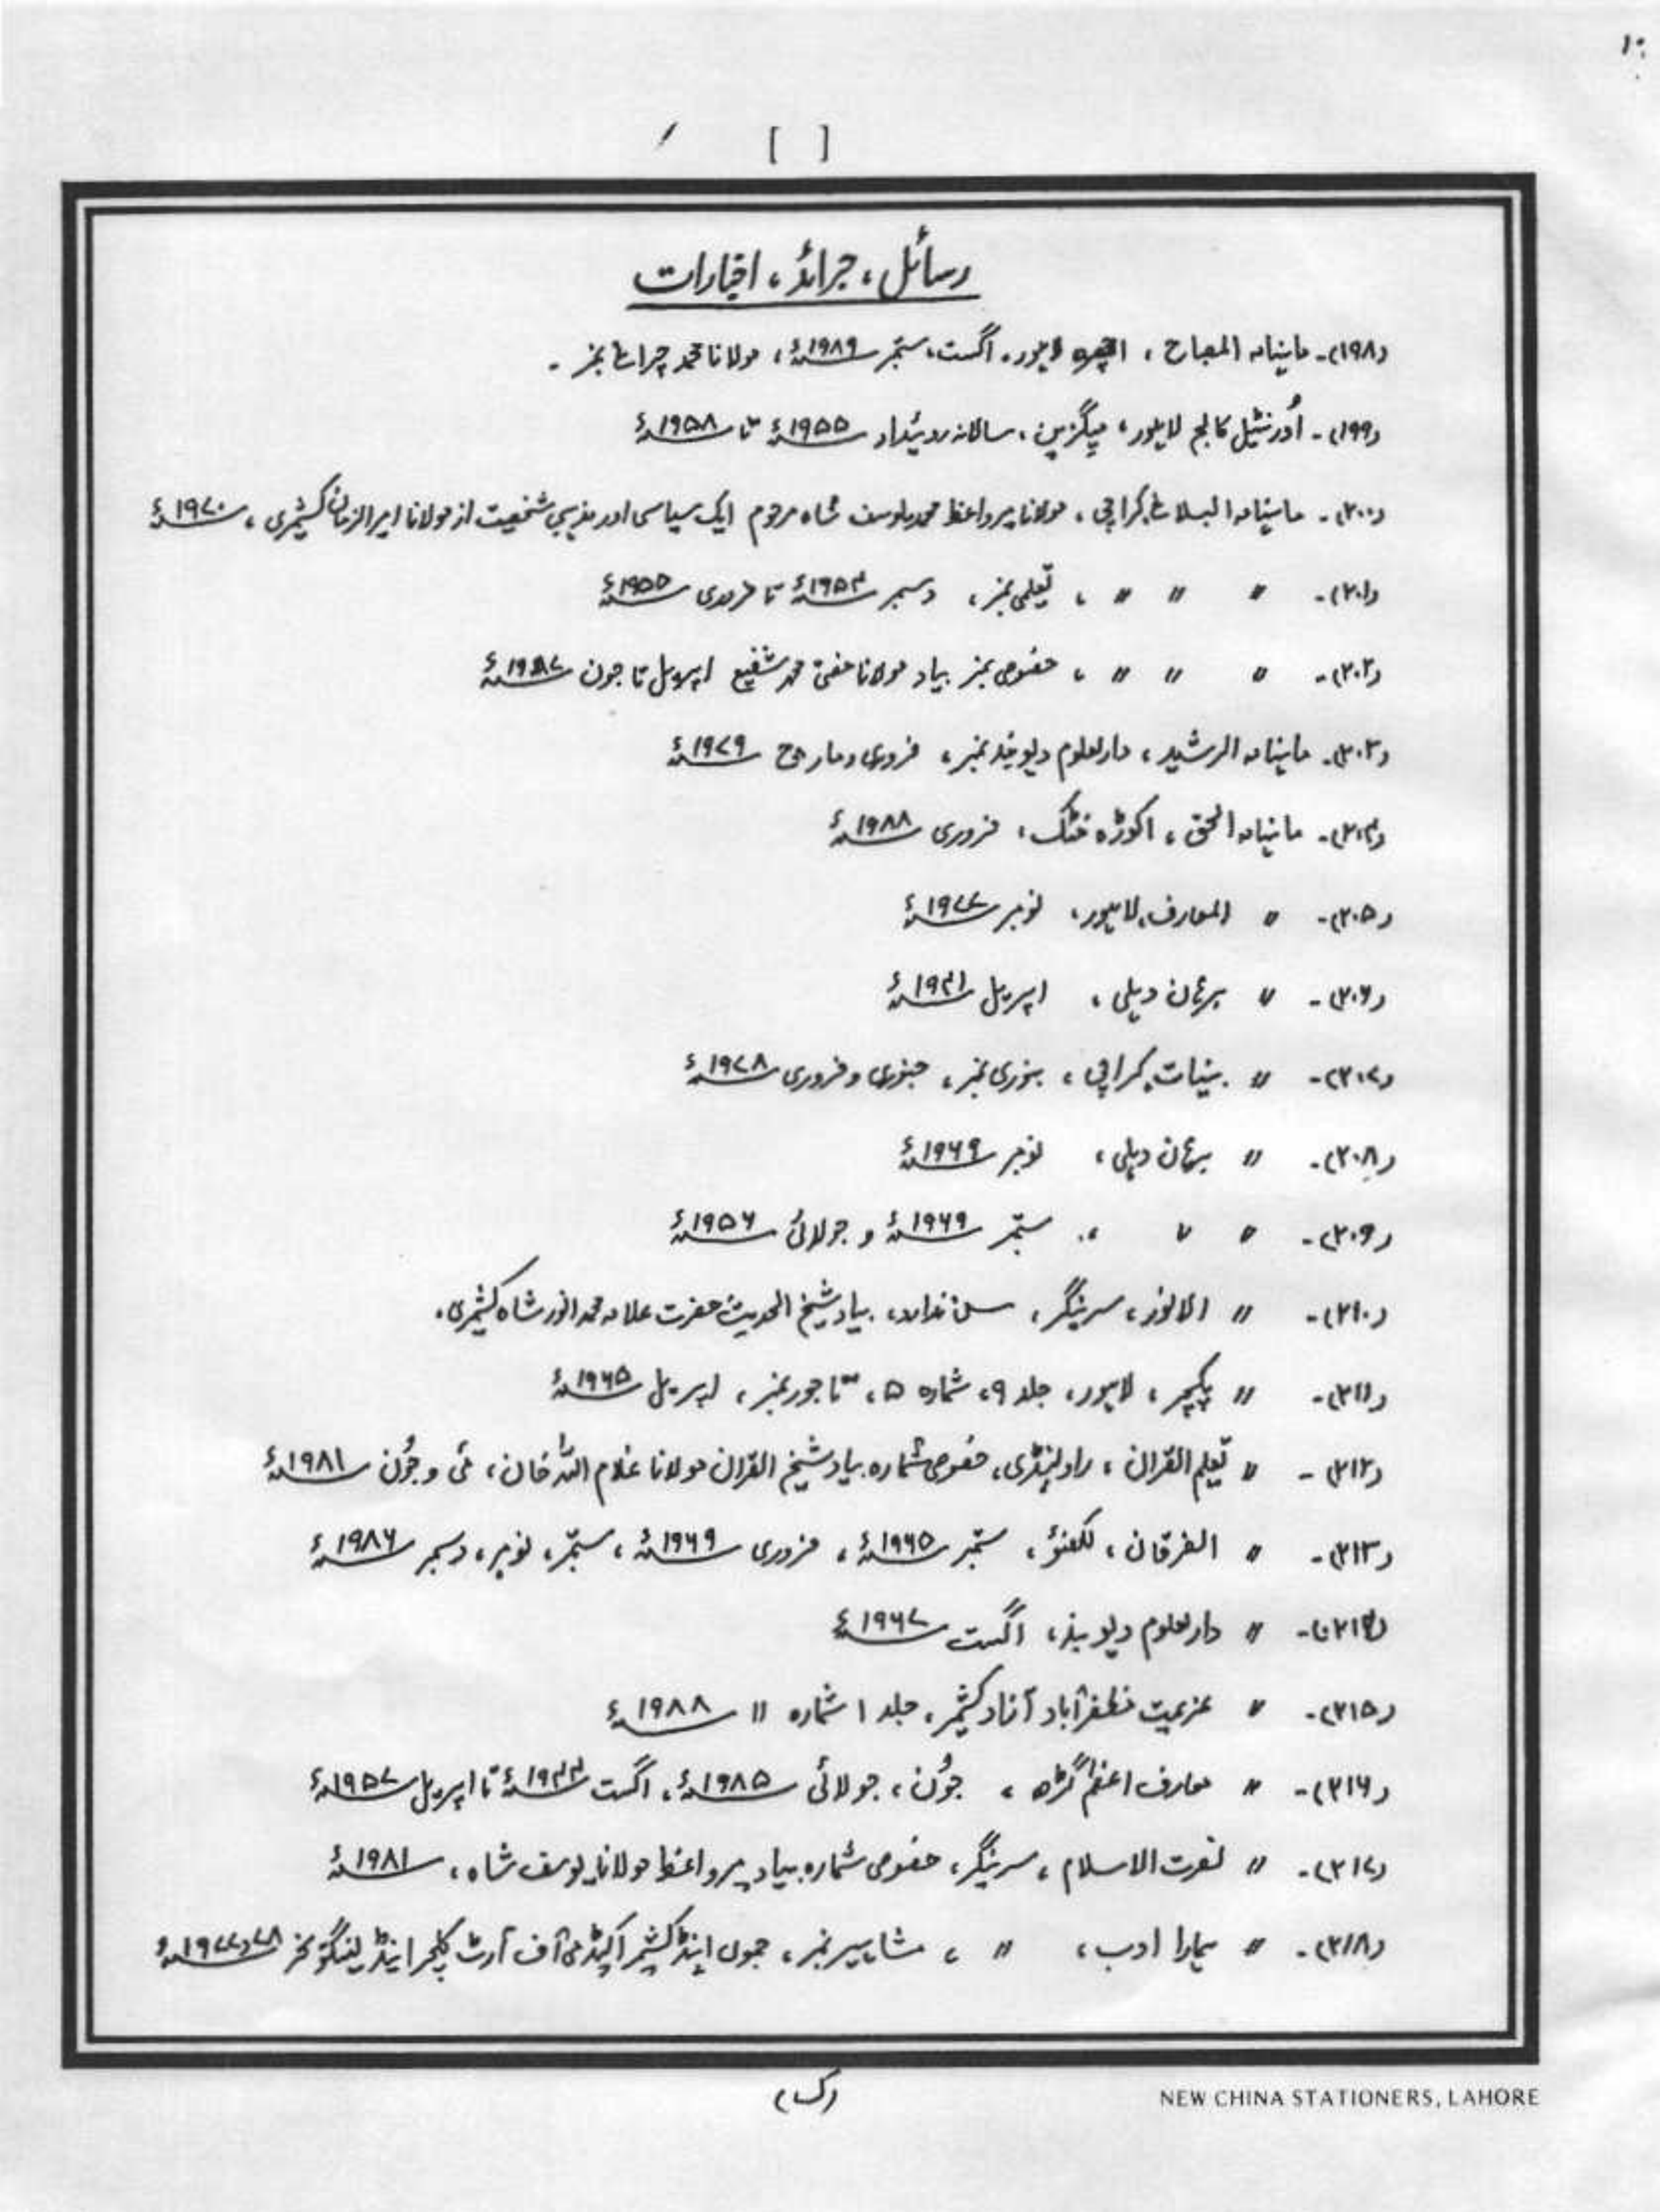 [ ]
رسائل، جرائد، اخبارات
(۱۹۸)۔ ماہنامہ المصباح، اچھرہ لاہور۔ اگست، ستمبر ۱۹۸۹ء، مولانا محمد چراغ نمبر۔
(۱۹۹)۔ اُورنٹیل کالج لاہور، میگزین، سالانہ روئیداد ۱۹۵۵ء تا ۱۹۵۸ء
(۲۰۰)۔ ماہنامہ البلاغ کراچی، مولانا میر واعظ محمد یوسف شاہ مرحوم ایک سیاسی اور مذہبی شخصیت از مولانا امیر الزمان کشمیری، ۱۹۷۰ء
(۲۰۱)۔ 〃 〃 〃، تعلیمی نمبر، دسمبر ۱۹۵۴ء تا فروری ۱۹۵۵ء
(۲۰۲)۔ 〃 〃 〃، خصوصی نمبر بیاد مولانا مفتی محمد شفیع اپریل تا جون ۱۹۸۷ء
(۲۰۳)۔ ماہنامہ الرشید، دارالعلوم دیوبند نمبر، فروری و مارچ ۱۹۷۹ء
(۲۰۴)۔ ماہنامہ الحق، اکوڑہ خٹک، فروری ۱۹۸۸ء
(۲۰۵)۔ 〃 المعارف، لاہور، نومبر ۱۹۷۷ء
(۲۰۶)۔ 〃 برہان دہلی، اپریل ۱۹۴۱ء
(۲۰۷)۔ 〃 بینات کراچی، بنوری نمبر، جنوری و فروری ۱۹۷۸ء
(۲۰۸)۔ 〃 برہان دہلی، نومبر ۱۹۶۹ء
(۲۰۹)۔ 〃 〃، ستمبر ۱۹۶۹ء و جولائی ۱۹۵۶ء
(۲۱۰)۔ 〃 الانور، سرینگر، سن ندارد، بیاد شیخ الحدیث حضرت علامہ محمد انور شاہ کشمیری۔
(۲۱۱)۔ 〃 پکچر، لاہور، جلد ۹، شمارہ ۵، تاجور نمبر، اپریل ۱۹۶۵ء
(۲۱۲)۔ 〃 تعلیم القرآن، راولپنڈی، خصوصی شمارہ بیاد شیخ القرآن مولانا غلام اللہ خان، مئی و جُون ۱۹۸۱ء
(۲۱۳)۔ 〃 الفرقان، لکھنؤ، ستمبر ۱۹۶۵ء، فروری ۱۹۶۹ء، ستمبر، نومبر، دسمبر ۱۹۸۶ء
(۲۱۴)۔ 〃 دارالعلوم دیوبند، اگست ۱۹۶۷ء
(۲۱۵)۔ 〃 عزیمت مظفرآباد آزاد کشمیر، جلد ۱ شمارہ ۱۱ ۱۹۸۸ء
(۲۱۶)۔ 〃 معارف اعظم گڑھ، جُون، جولائی ۱۹۸۵ء، اگست ۱۹۴۴ء تا اپریل ۱۹۵۷ء
(۲۱۷)۔ 〃 نصرت الاسلام، سرینگر، خصوصی شمارہ بیاد میر واعظ مولانا یوسف شاہ، ۱۹۸۱ء
(۲۱۸)۔ 〃 ہمارا ادب، 〃، مشاہیر نمبر، جموں اینڈ کشمیر اکیڈمی آف آرٹ کلچر اینڈ لینگوئجز ۷۸ و ۱۹۷۷ء
(ک)
NEW CHINA STATIONERS, LAHORE